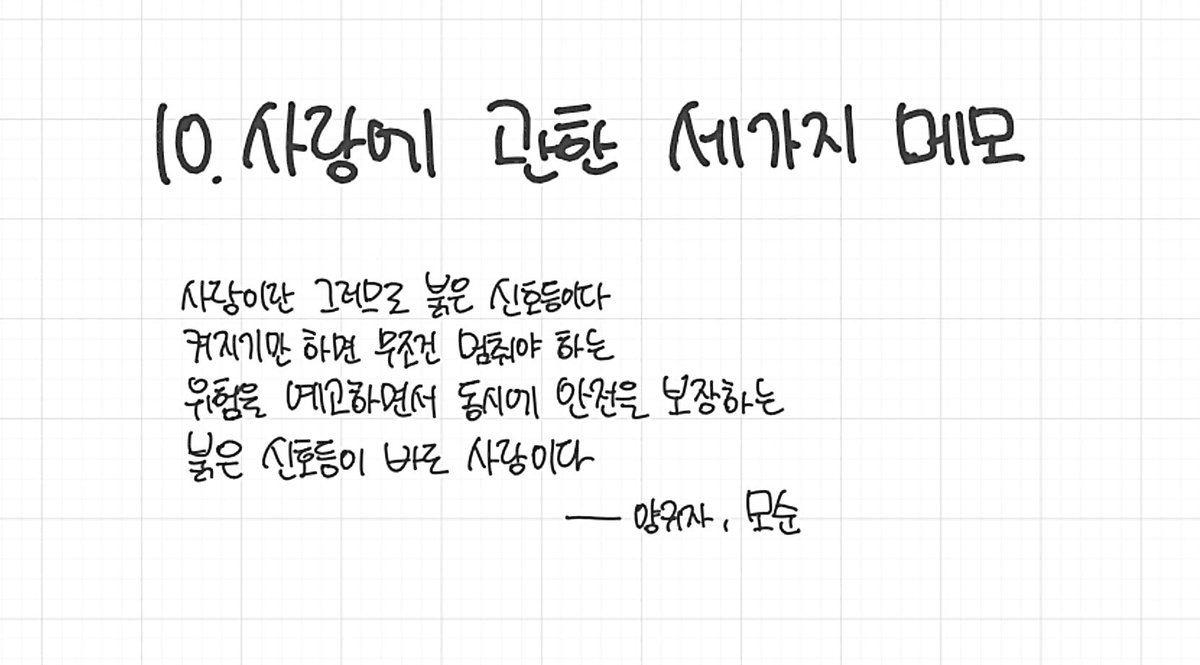 10. 사랑에 관한 세가지 메모
사랑이란 그러므로 붉은 신호등이다
켜지기만 하면 무조건 멈춰야 하는
위험을 예고하면서 동시에 안전을 보장하는
붉은 신호등이 바로 사랑이다
— 양귀자, 모순